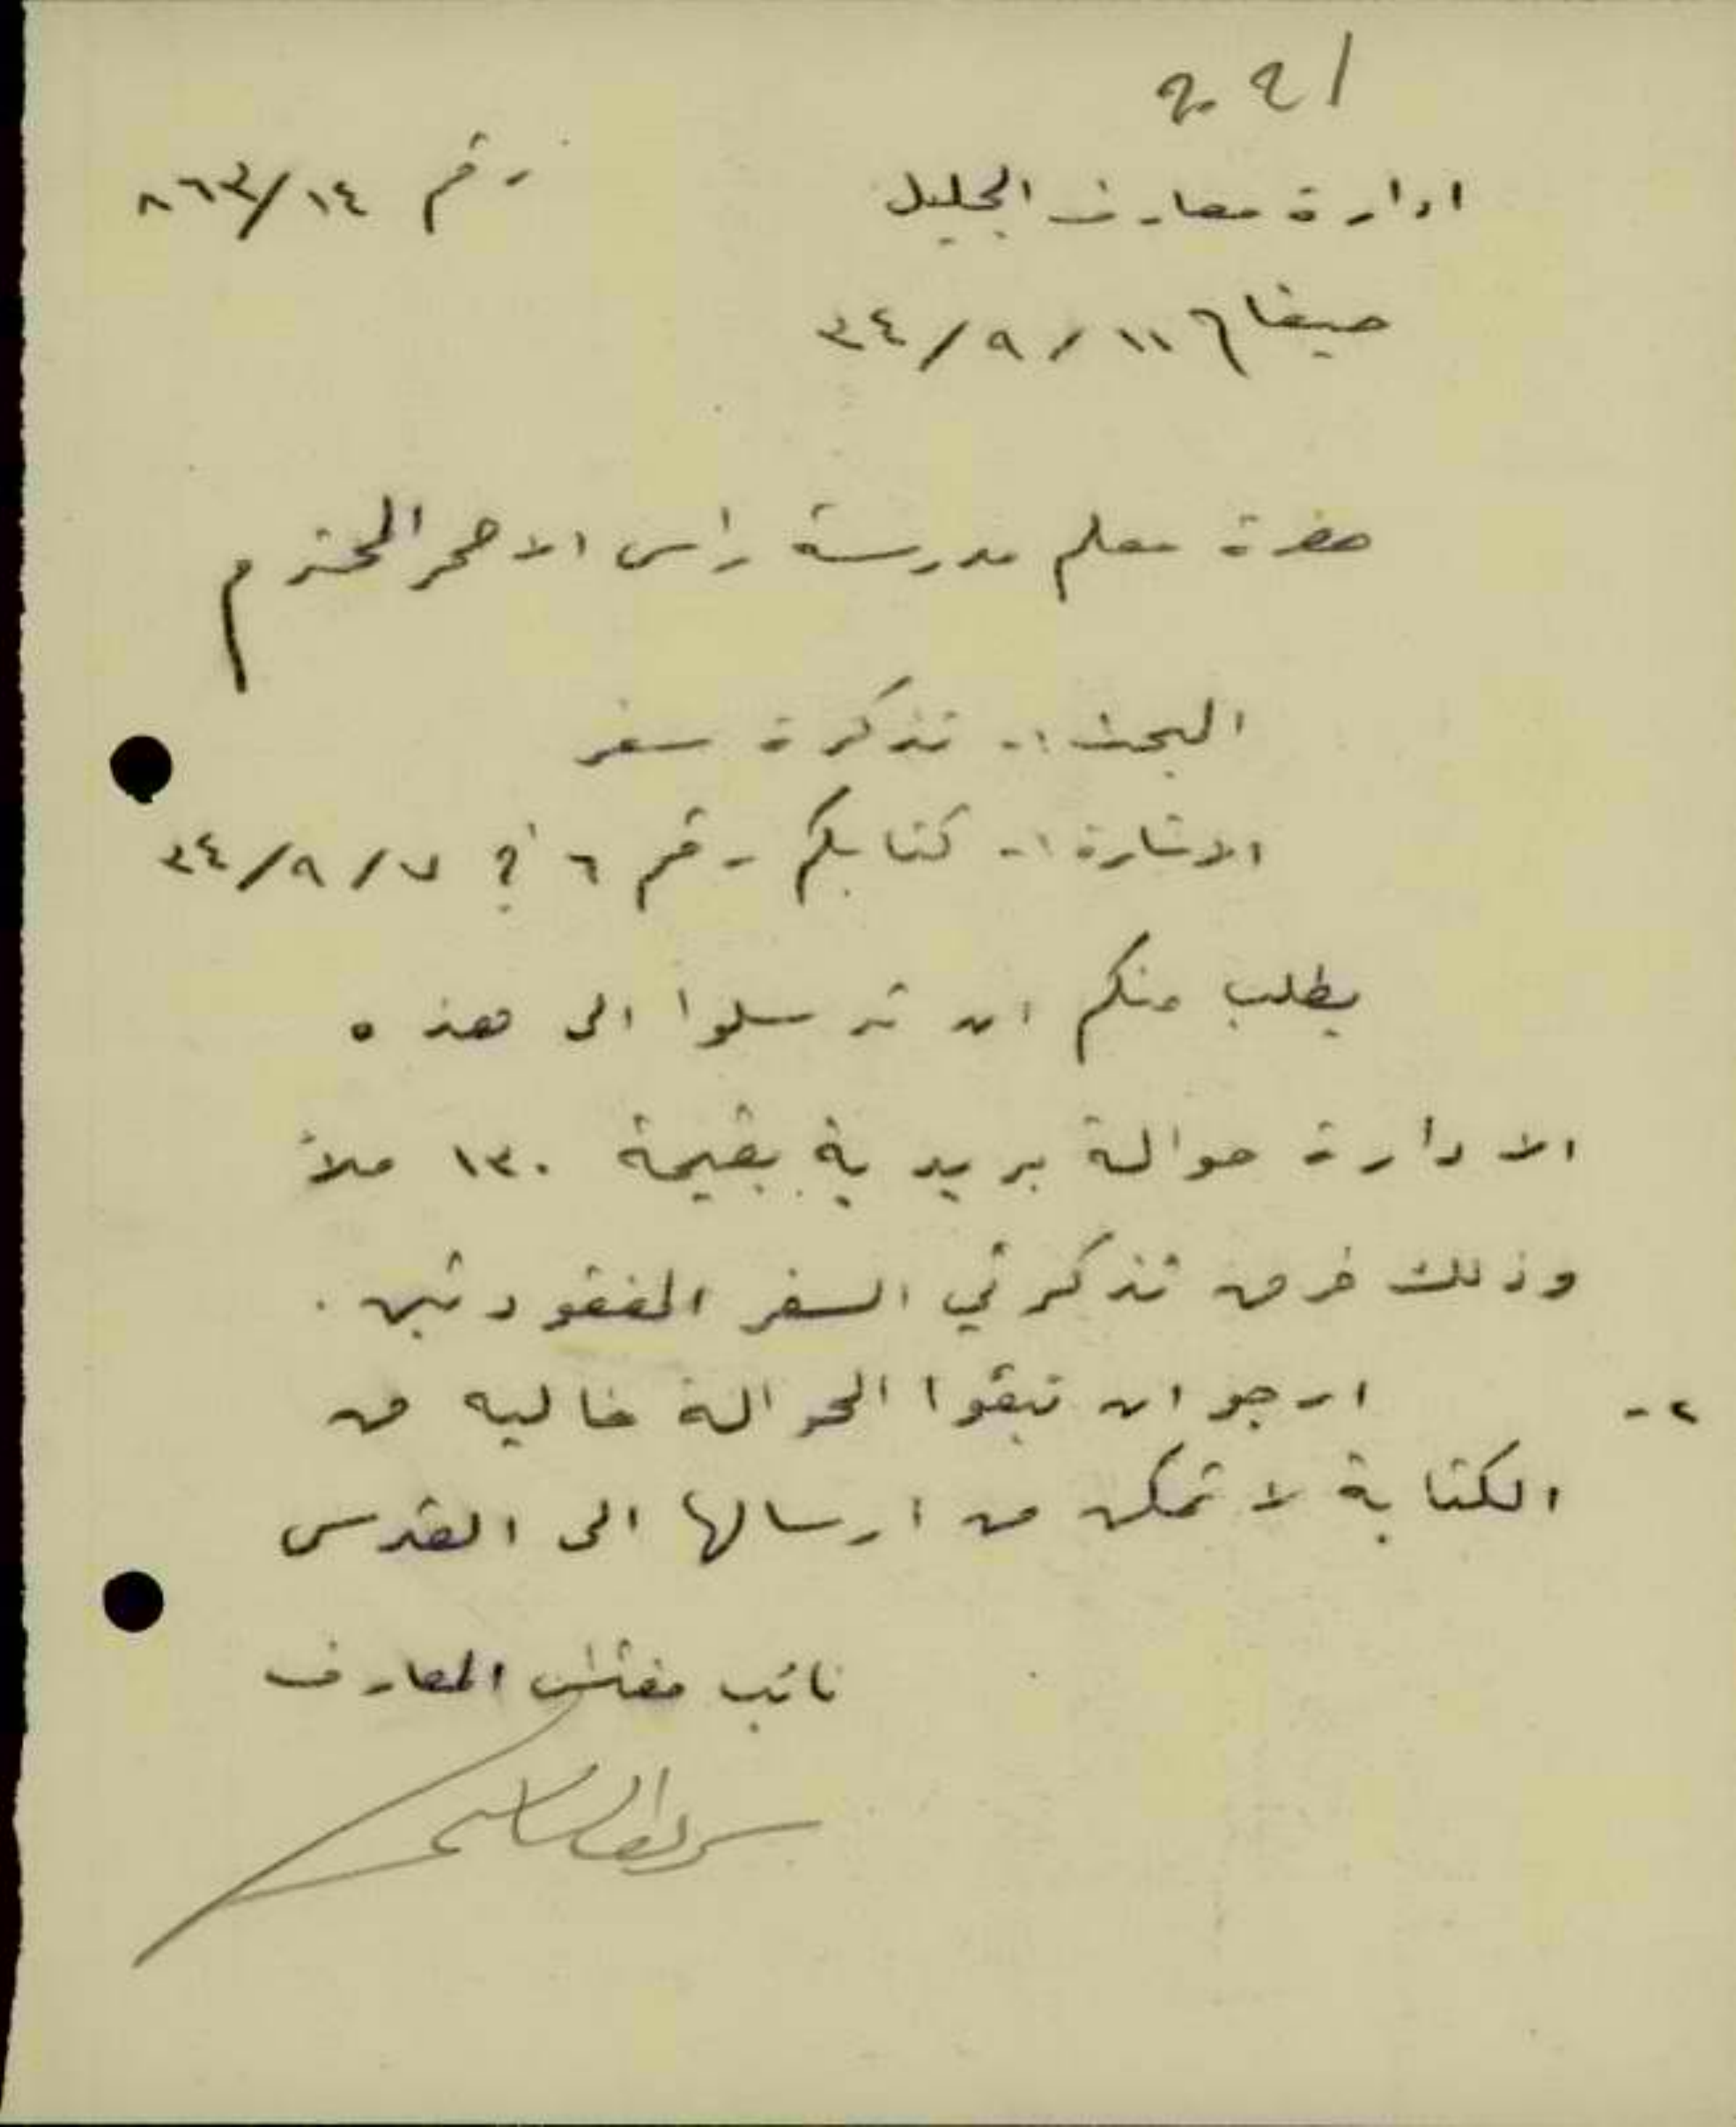 221
ادارة معارف الجليل
رقم ٨٦٣/١٤
حيفا ١١/٩/٣٤
حضرة معلم مدرسة راس الاحمر المحترم
البحث :- تذكرة سفر
الاشارة :- كتابكم رقم ٦ في ٧/٩/٣٤
يطلب منكم ان ترسلوا الى هذه
الادارة حوالة بريدية بقيمة ١٣٠ ملاً
وذلك فرق تذكرتي السفر المفقودتين .
٢- ارجو ان تبقوا الحوالة خاليه من
الكتابة لاتمكن من ارسالها الى القدس
نائب مفتش المعارف